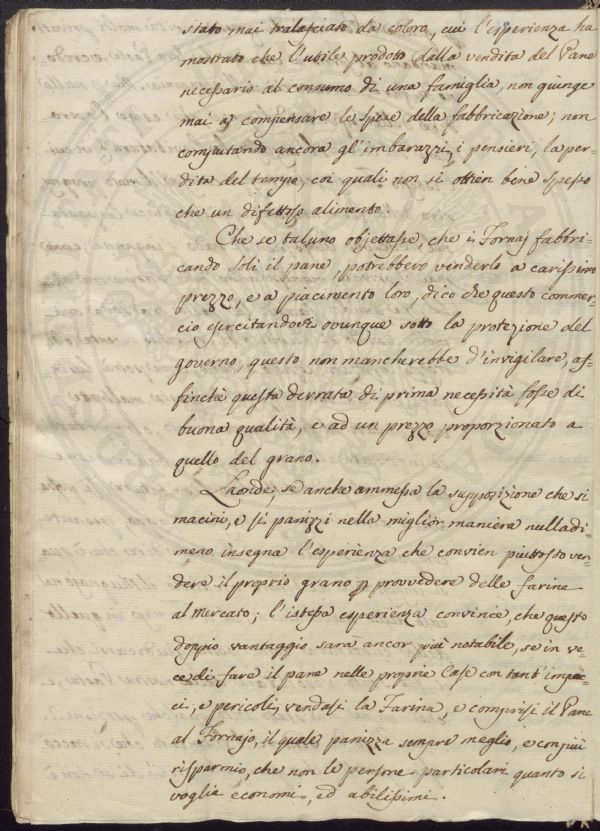 stato mai tralasciato da coloro, cui l'esperienza ha
mostrato che l'utile prodotto dalla vendita del Pane
necessario al consumo di una famiglia, non giunge
mai a compensare le spese della fabbricazione; non
computando ancora gl'imbarazzi, i pensieri, la per-
dita del tempo, coi quali non si ottien bene spesso
che un difettoso alimento.
Che se taluno objettasse, che i Fornaj fabbri-
cando soli il pane, potrebbero venderlo a carissimo
prezzo, e a piacimento loro, dico che questo commer-
cio esercitandosi ovunque sotto la protezione del
governo, questo non mancherebbe d'invigilare, af-
finchè questa derrata di prima necessità fosse di
buona qualità, e ad un prezzo proporzionato a
quello del grano.
Laonde, se anche ammessa la supposizione che si
macini, e si panizzi nella miglior maniera nulladi-
meno insegna l'esperienza che convien piuttosto ven-
dere il proprio grano e provvedere delle farine
al mercato; l'istessa esperienza convince, che questo
doppio vantaggio sarà ancor più notabile, se in ve-
ce di fare il pane nelle proprie Case con tant'impac-
ci, e pericoli, vendasi la Farina, e comprisi il Pane
al Fornajo, il quale panizza sempre meglio, e con più
risparmio, che non le persone particolari quanto si
voglia economi, ed abilissimi.